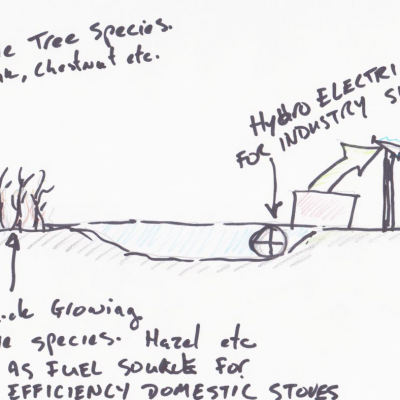 Tree Species.
Chestnut etc.
Hydro ELECTRI
FOR INDUSTRY
Growing
species. Hazel etc
AS FUEL SOURCE FOR
EFFICIENCY DOMESTIC STOVES